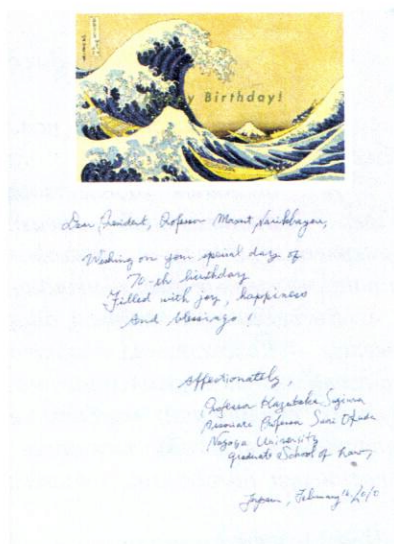 Birthday!
Dear President, Professor
Wishing on your special day of
70-th birthday
Filled with joy, happiness
And blessings!
Affectionately,
Professor Kazutaka
Associate Professor
Nagoya University
Graduate School of Law,
Japan, February 2010